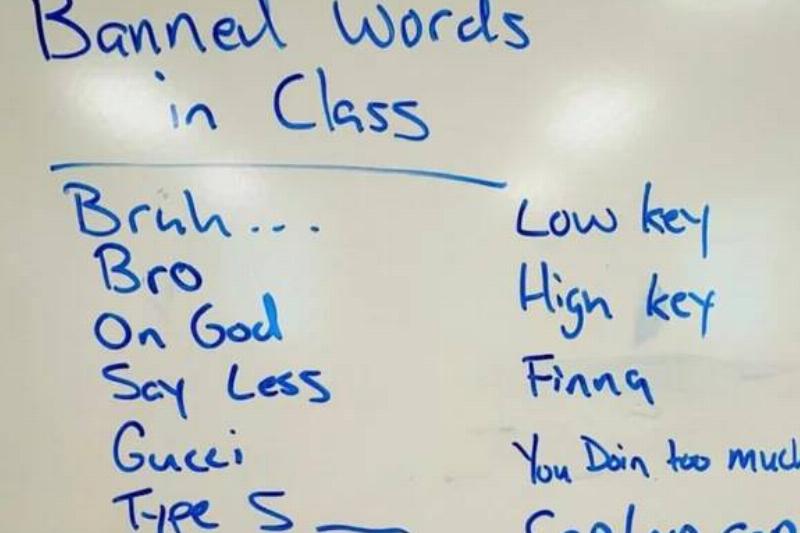 Banned Words
in Class
Bruh...
Bro
On God
Say Less
Gucci
Type S __
Low key
High key
Finna
You Doin too much